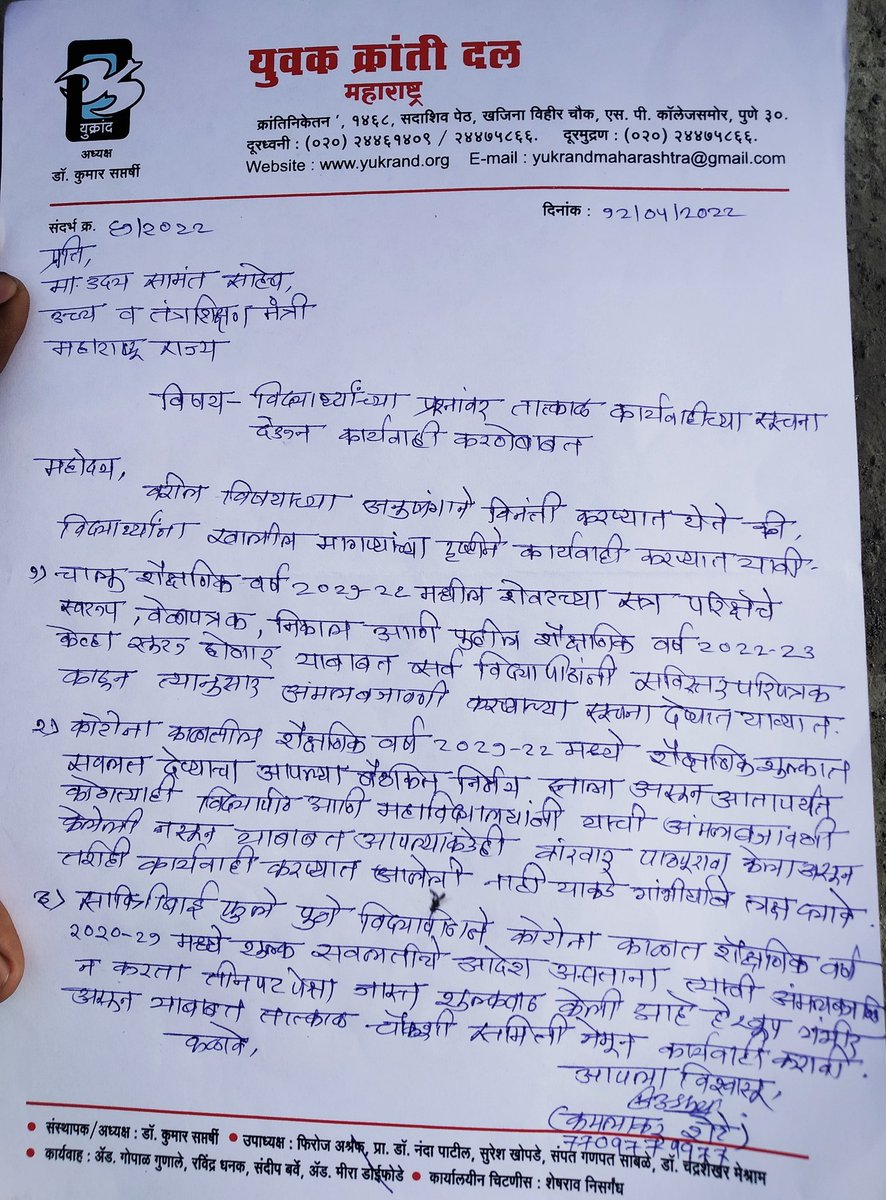 युवक क्रांती दल
महाराष्ट्र
युक्रांद
अध्यक्ष
डॉ. कुमार सप्तर्षी
क्रांतिनिकेतन', १४६८, सदाशिव पेठ, खजिना विहीर चौक, एस. पी. कॉलेजसमोर, पुणे ३०.
दूरध्वनी : (०२०) २४४६१४०९ / २४४७५८६६. दूरमुद्रण : (०२०) २४४७५८६६.
Website : www.yukrand.org E-mail : yukrandmaharashtra@gmail.com
संदर्भ क्र. ६७/२०२२
दिनांक : १२/०५/२०२२
प्रति,
मा. उदय सामंत साहेब,
उच्च व तंत्रशिक्षण मंत्री
महाराष्ट्र राज्य
विषय - विद्यार्थ्यांच्या प्रश्नांवर तात्काळ कार्यवाहीच्या सूचना
देऊन कार्यवाही करणेबाबत
महोदय,
वरील विषयाच्या अनुषंगाने विनंती करण्यात येते की,
विद्यार्थ्यांना खालील मागण्यांच्या दृष्टीने कार्यवाही करण्यात यावी -
१) चालू शैक्षणिक वर्ष २०२१-२२ मधील शेवटच्या सत्र परिक्षेचे
स्वरूप, वेळापत्रक, निकाल आणि पुढील शैक्षणिक वर्ष २०२२-२३
केव्हा सुरू होणार याबाबत सर्व विद्यापीठांनी सविस्तर परिपत्रक
काढून त्यानुसार अंमलबजावणी करण्याच्या सूचना देण्यात याव्यात.
२) कोरोना काळातील शैक्षणिक वर्ष २०२१-२२ मध्ये शैक्षणिक शुल्कात
सवलत देण्याचा आपल्या बैठकित निर्णय झाला असून आतापर्यंत
कोणत्याही विद्यापीठ आणि महाविद्यालयांनी याची अंमलबजावणी
केलेली नसून याबाबत आपल्याकडेही वारंवार पाठपुरावा केला असून
तरीही कार्यवाही करण्यात आलेली नाही याकडे गांभीर्याने लक्ष द्यावे.
३) सावित्रीबाई फुले पुणे विद्यापीठाने कोरोना काळात शैक्षणिक वर्ष
२०२०-२१ मध्ये शुल्क सवलतीचे आदेश असताना त्याची अंमलबजावणी
न करता तीनपटपेक्षा जास्त शुल्कवाढ केली आहे हे खूप गंभीर
असून याबाबत तात्काळ चौकशी समिती नेमून कार्यवाही करावी.
कळावे,
आपला विश्वासू,
(कमलाकर शेटे)
संस्थापक/अध्यक्ष : डॉ. कुमार सप्तर्षी उपाध्यक्ष : फिरोज अश्रफ, प्रा. डॉ. नंदा पाटील, सुरेश खोपडे, संपत गणपत साबळे, डॉ. चंद्रशेखर मेश्राम
कार्यवाह : ॲड. गोपाळ गुणाले, रविंद्र धनक, संदीप बर्वे, ॲड. मीरा डोईफोडे कार्यालयीन चिटणीस : शेषराव निसर्गंध